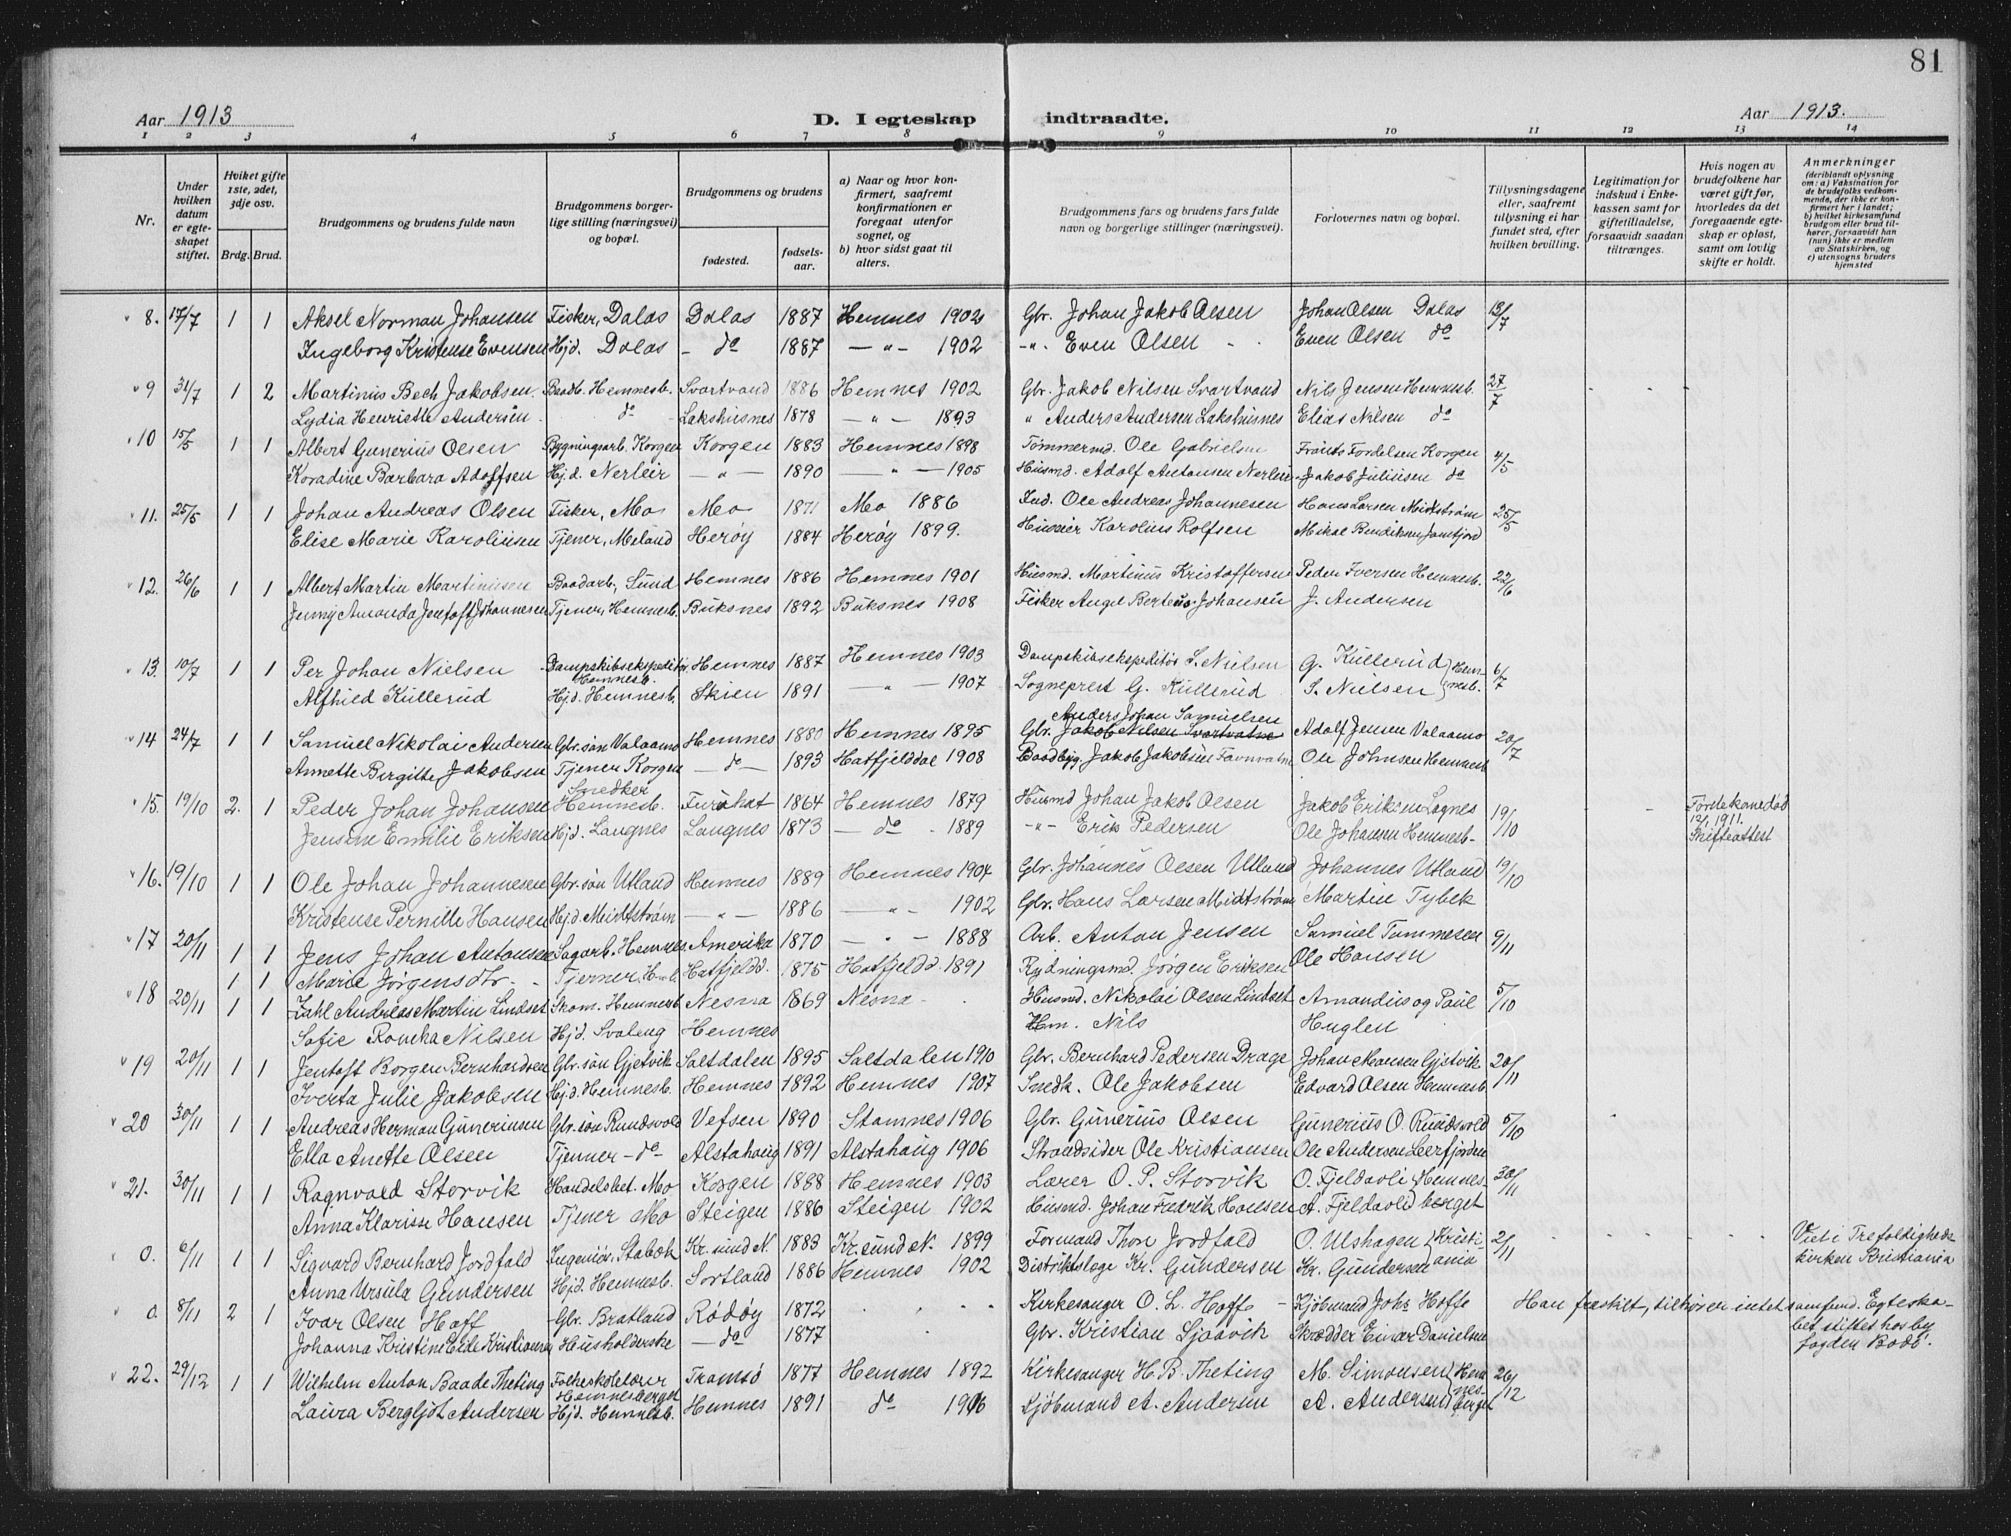 81
Aar 1913 D. I egteskap indtraadte. Aar 1913.
1 2 3 4 5 6 7 8 9 10 11 12 13 14
Nr.
Under hvilken datum er egteskapet stiftet.
Hviket gifte 1ste, 2det, 3dje osv.
Brdg. Brud.
Brudgommens og brudens fulde navn
Brudgommens borgerlige stilling (næringsvei) og bopæl.
Brudgommens og brudens
fødested. fødselsaar.
a) Naar og hvor konfirmert, saafremt konfirmationen er foregaat utenfor sognet, og
b) hvor sidst gaat til alters.
Brudgommens fars og brudens fars fulde navn og borgerlige stillinger (næringsvei).
Forlovernes navn og bopæl.
Tillysningsdagene eller, saafremt tillysning ei har fundet sted, efter hvilken bevilling.
Legitimation for indskud i Enkekassen samt for giftetilladelse, forsaavidt saadan tiltrænges.
Hvis nogen av brudefolkene har været gift før, hvorledes da det foregaaende egteskap er opløst, samt om lovlig skifte er holdt.
Anmerkninger
(deriblandt oplysning om: a) Vaksination for de brudefolks vedkommende, der ikke er konfirmert her i landet; b) hvilket kirkesamfund brudgom eller brud tilhører, forsaavidt han (hun) ikke er medlem av Statskirken, og c) utensogns bruders hjemsted
8. 17/7 1 1 Aksel Norman Johansen Fisker, Dalas Dalas 1887 Hemnes 1902 Gbr. Johan Jakob Olsen Johan Olsen Dalas 13/7
Ingeborg Kristense Evensen Hjd. Dalas - do 1887 - " - 1902 - " - Even Olsen Even Olsen do
9 31/7 1 2 Martinus Bech Jakobsen Baadb. Hemnesb. Svartvand 1886 Hemnes 1902 Gbr. Jakob Nilsen Svartvand Nils Jensen Hemnesb. 27/7
Lydia Henriette Andersen do Lakshusnes 1878 - " - 1893 " Anders Andersen Lakshusnes Elias Nilsen do
10 15/5 1 1 Albert Gunerius Olsen Bygningsarb. Korgen Korgen 1883 Hemnes 1898 Tømmermd. Ole Gabrielsen Frants Fordelsen Korgen 4/5
Koradine Barbara Adolfsen Hjd. Nerleir - " - 1890 - " - 1905 Husmd. Adolf Antonsen Nerleir Jakob Juliusen do
11. 25/5 1 1 Johan Andreas Olsen Fisker, Mo Mo 1871 Mo 1886 Ind. Ole Andreas Johannesen Hans Larsen Midtstrøm 25/5
Elise Marie Karolinsen Tjener, Meland Herøy 1884 Herøy 1899. Husmd Karolius Rolfsen Mikal Bendiksen
12. 26/6 1 1 Albert Martin Martinusen Baadarb., Sund Hemnes 1886 Hemnes 1901 Husmd. Martinus Kristoffersen Peder Iversen Hemnesb. 22/6
Jenny Amanda Jentoft Johannesen Tjener, Hemnesb. Buksnes 1892 Buksnes 1908 Fisker Angel Berteus Johansen J. Andersen
13. 10/7 1 1 Per Johan Nielsen Dampskibsekspeditør Hemnesb. Hemnes 1887 Hemnes 1903 Dampskibsekspeditør S. Nielsen G. Kullerud } Hemnesb. 6/7
Alfhild Kullerud Hjd. Hemnesb. Skien 1891 - " - 1907 Sogneprest G. Kullerud S. Nielsen
14 24/7 1 1 Samuel Nikolai Andersen Gbr. søn Valaamo Hemnes 1880 Hemnes 1895 Gbr. Jakob Nilsen Svartvatne Anders Johan Samuelsen Adolf Jensen Valaamo 20/7
Annette Birgitte Jakobsen Tjener Korgen - do - 1893 Hatfjelddal 1908 Baadbyg. Jakob Jakobsen Favnvatn Ole Johnsen Hemnesb
15. 19/10 2. 1 Peder Johan Johansen Snedker Hemnesb. Furuhat 1864 Hemnes 1879 Husmd Johan Jakob Olsen Jakob Eriksen Lagnes 19/10 Første kone død 12/1 1911. Skifteattest
Jensine Emilie Eriksen Hjd. Langnes Langnes 1873 - do - 1889 - " - Erik Pedersen Ole Johansen Hemnesb-
16. 19/10 1 1 Ole Johan Johannesen Gbr. søn Utland Hemnes 1889 Hemnes 1904 Gbr. Johannes Olsen Utland Johannes Utland 19/10
Kristense Pernille Hansen Hjd. Midtstrøm - " - 1886 - " - 1902 Gbr. Hans Larsen Midtstrøm Martin Tybek
17 20/11 1 1 Jens Johan Antonsen Sagarb. Hemnes Amerika 1870 - " - 1888 Arb. Anton Jensen Samuel Tommesen 9/11
1 1 Marie Jørgensdtr. Tjener Hemb. Hatfjeldd. 1875 Hatfjeldd. 1891 Rydningsmd. Jørgen Eriksen Ole Hansen
18 20/11 1 1 Zahl Andreas Martin Lindset Skom. Hemnesb Nesna 1869 Nesna Husmd. Nikolai Olsen Lindset Amandus og Paul Huglen 5/10
Sofie Nilsen Hjd. Svaleng Hemnes Hm. Nils
19 20/11 1 1 Jentoft Borgen Bernhardsen Gbr. søn Gjetvik Saltdalen 1895 Saltdalen 1910 Gbr. Bernhard Pedersen Drage Johan Hansen Gjetvik 20/11
Iverta Julie Jakobsen Hjd. Hemnesb. Hemnes 1892 Hemnes 1907 Snedk. Ole Jakobsen Edvard Olsen Hemnesb
20 30/11 1 1 Andreas Herman Guneriusen Gbr. søn Rundsvold Vefsen 1890 Stamnes 1906 Gbr. Gunerius Olsen Gunerius O. Rundsvold 5/10
Ella Anette Olsen Tjener - do - Alstahaug 1891 Alstahaug 1906 Strandsider Ole Kristiansen Ole Andersen Leerfjorden
21. 30/11 1 1 Ragnvald Storvik Handelsbet. Mo Korgen 1888 Hemnes 1903 Lærer O. P. Storvik O. Fjeldavli } Hemnesberget 30/11
Anna Klarisse Hansen Tjener Mo Steigen 1886 Steigen 1902 Husmd. Johan Fredrik Hansen A. Fjeldavli
0. 6/11 1 1 Sigvard Bernhard Jordfald Ingeniør, Stabæk Kr.sund N. 1883 Kr.sund N. 1899 Formand Thore Jordfald O. Ulshagen } Kristiania 2/11 Viet i Trefoldighedskirken Kristiania
Anna Ursula Gundersen Hjd. Hemnesb. Sortland 1886 Hemnes 1902 Distriktslæge Kr. Gundersen Kr. Gundersen
0. 8/11 2 1 Ivar Olsen Hoff Gbr. Bratland Rødøy 1872 Kirkesanger O. L. Hoff Kjøbmand Johs Hoffe Han fraskilt, tilhører intet samfund. Egteskabet stiftet hos byfogden Bodø.
Johanna Kristine Eide Kristiansen Husholderske - do 1877 Gbr. Kristian Sjaavik Skrædder Einar Danielsen
22. 29/12 1 1 Wilhelm Anton Baade Theting Folkeskolelærer Hemnesberget Tromsø 1877 Hemnes 1892 Kirkesanger H. B. Theting M. Simonsen } Hemnesberget 26/12
Laura Bergljot Andersen Hjd. Hemnesb. Hemnes 1891 do 1906 Kjøbmand A. Andersen A. Andersen